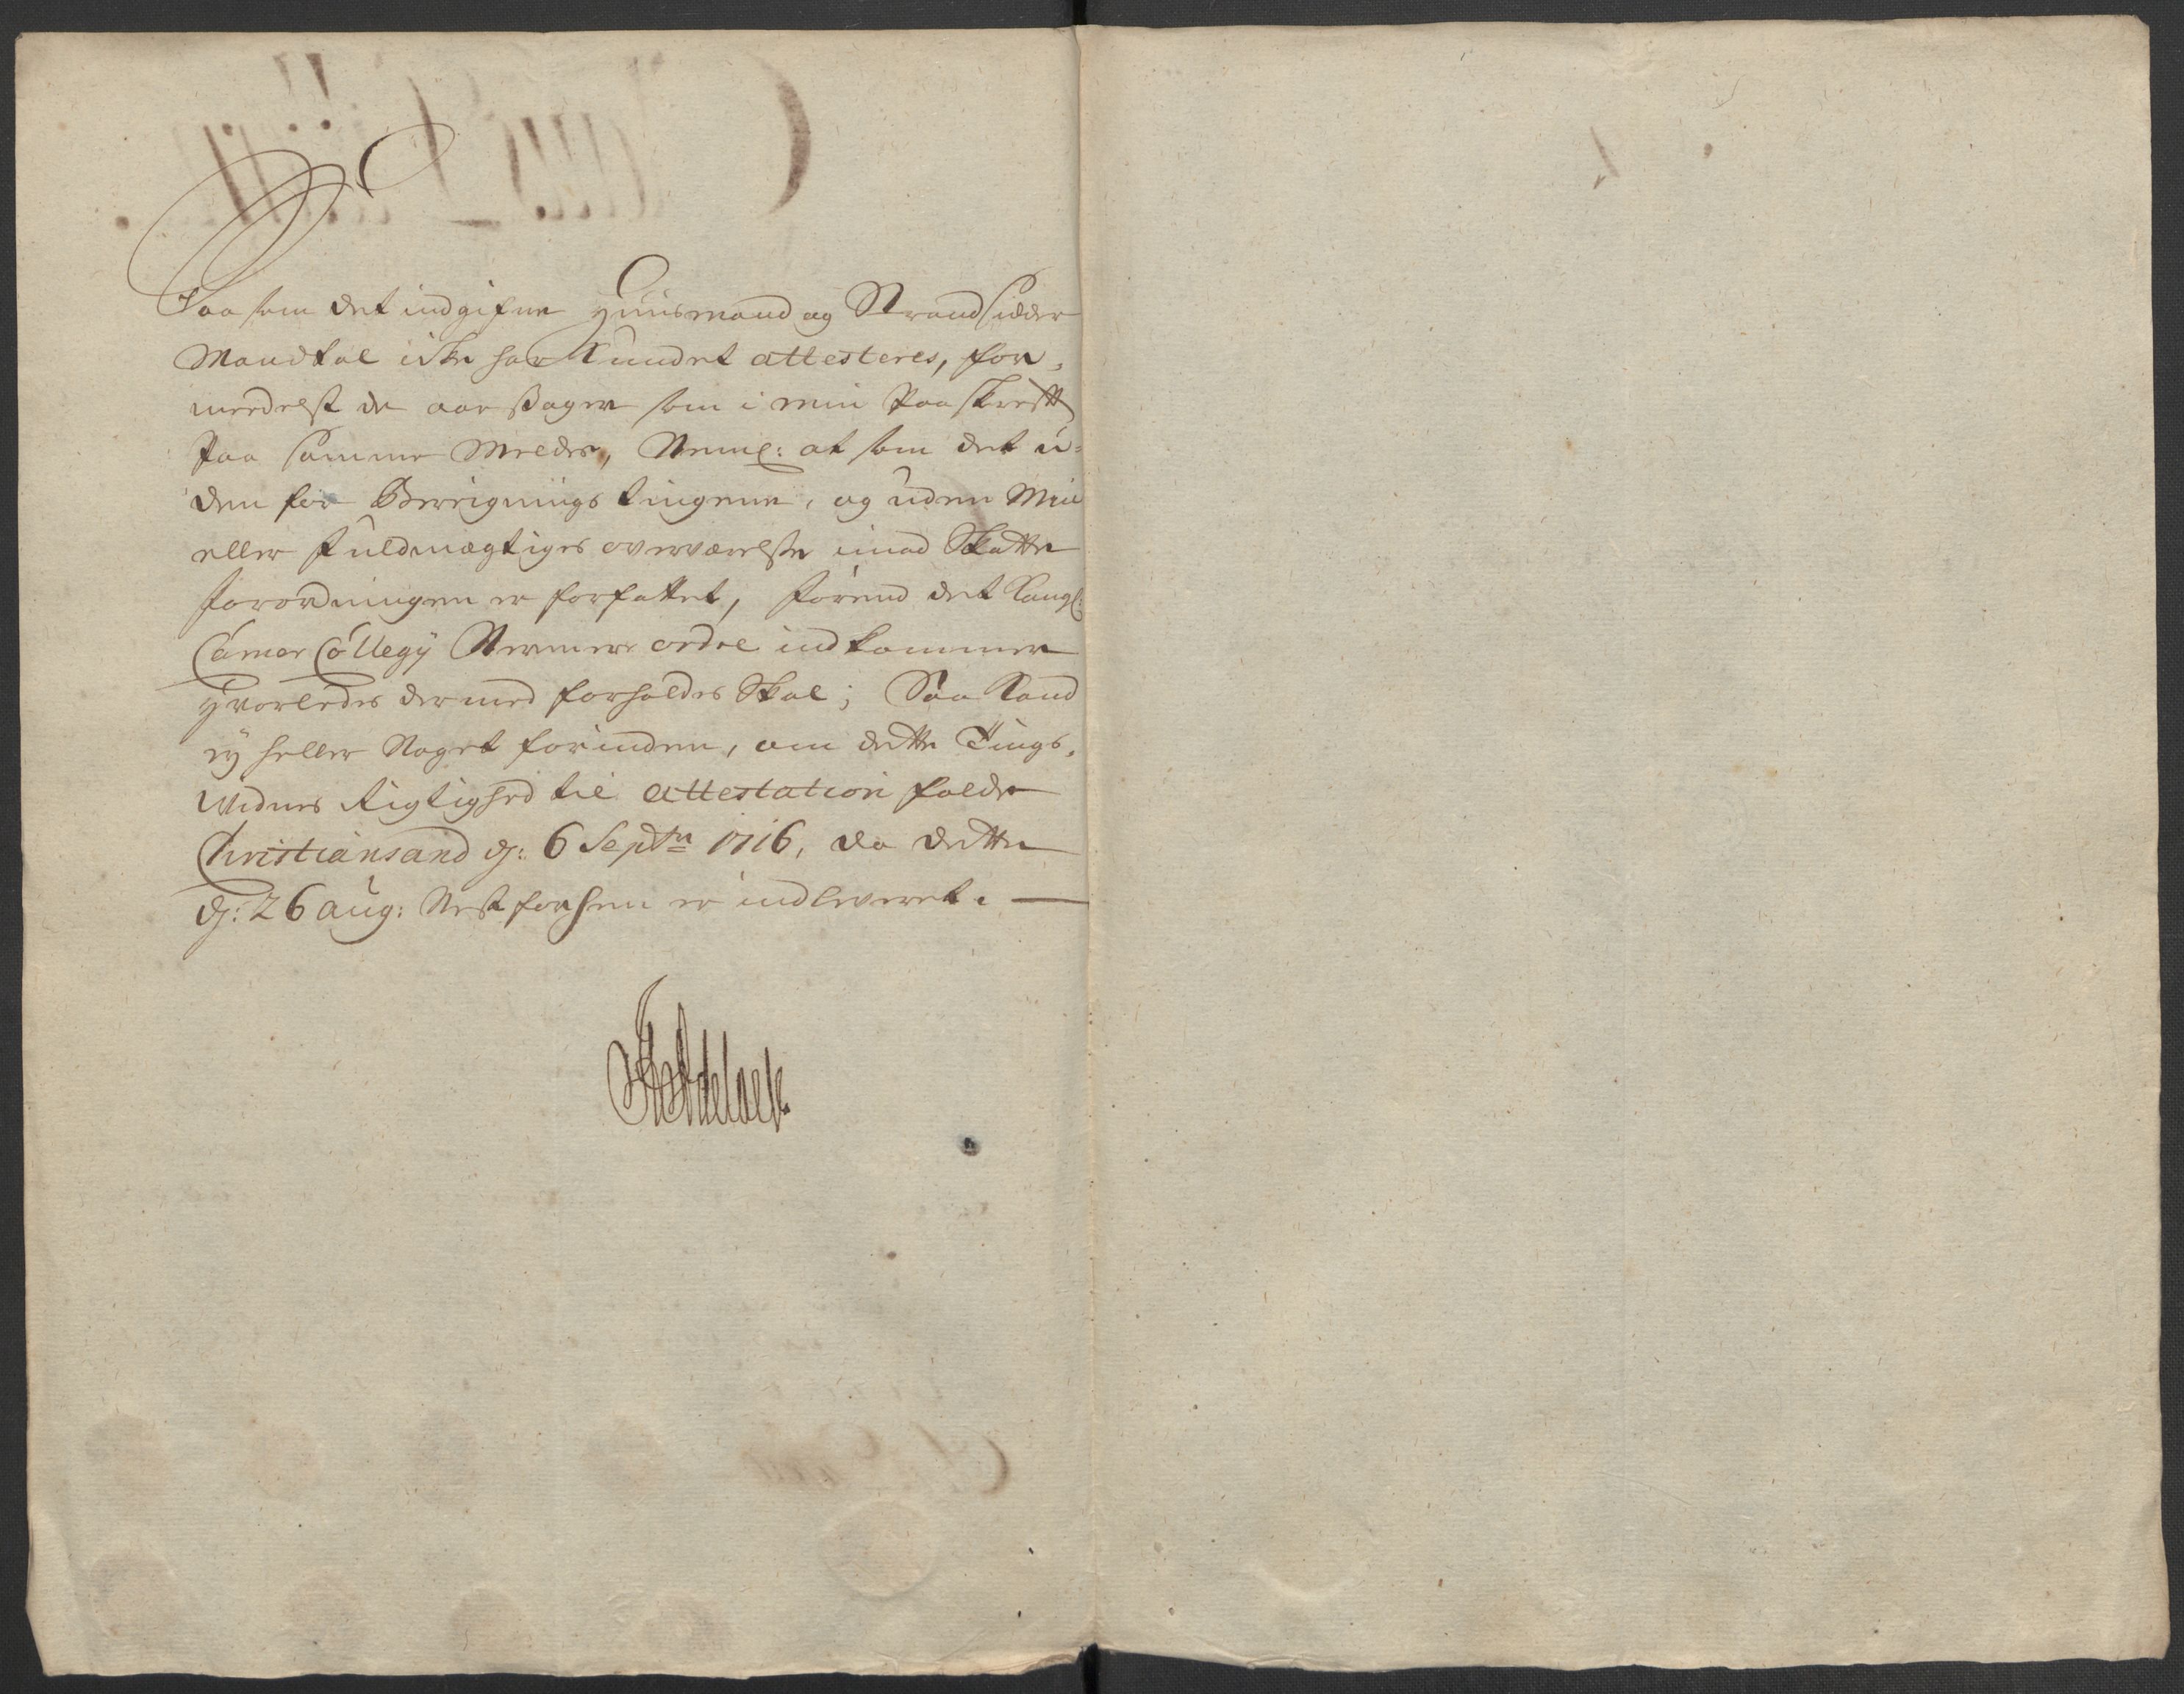 Saa som det indgifne Huusmand og Strandsidder
Mandtal icke har Kundet attesteres, for,
medelst de aarsager som i min Paaskrefft
paa samme Melder, Neml: at som det u=
den for Bereigniings tingene, og uden Min
eller fuldmægtiges overværelse imod Skatte
forordningen er forfattet, førend det Kongl:
Camer Collegij Nermere ordre indkommer
Hvorledes dermed forholdes Skal; Saa Kand
ej heller Noget forinden, om dette Tings,
Widnes Rigtighed til attestation falde
Christiansand d: 6 Septr 1716, da dette
d: 26 aug: Nest forhen er indleveret.